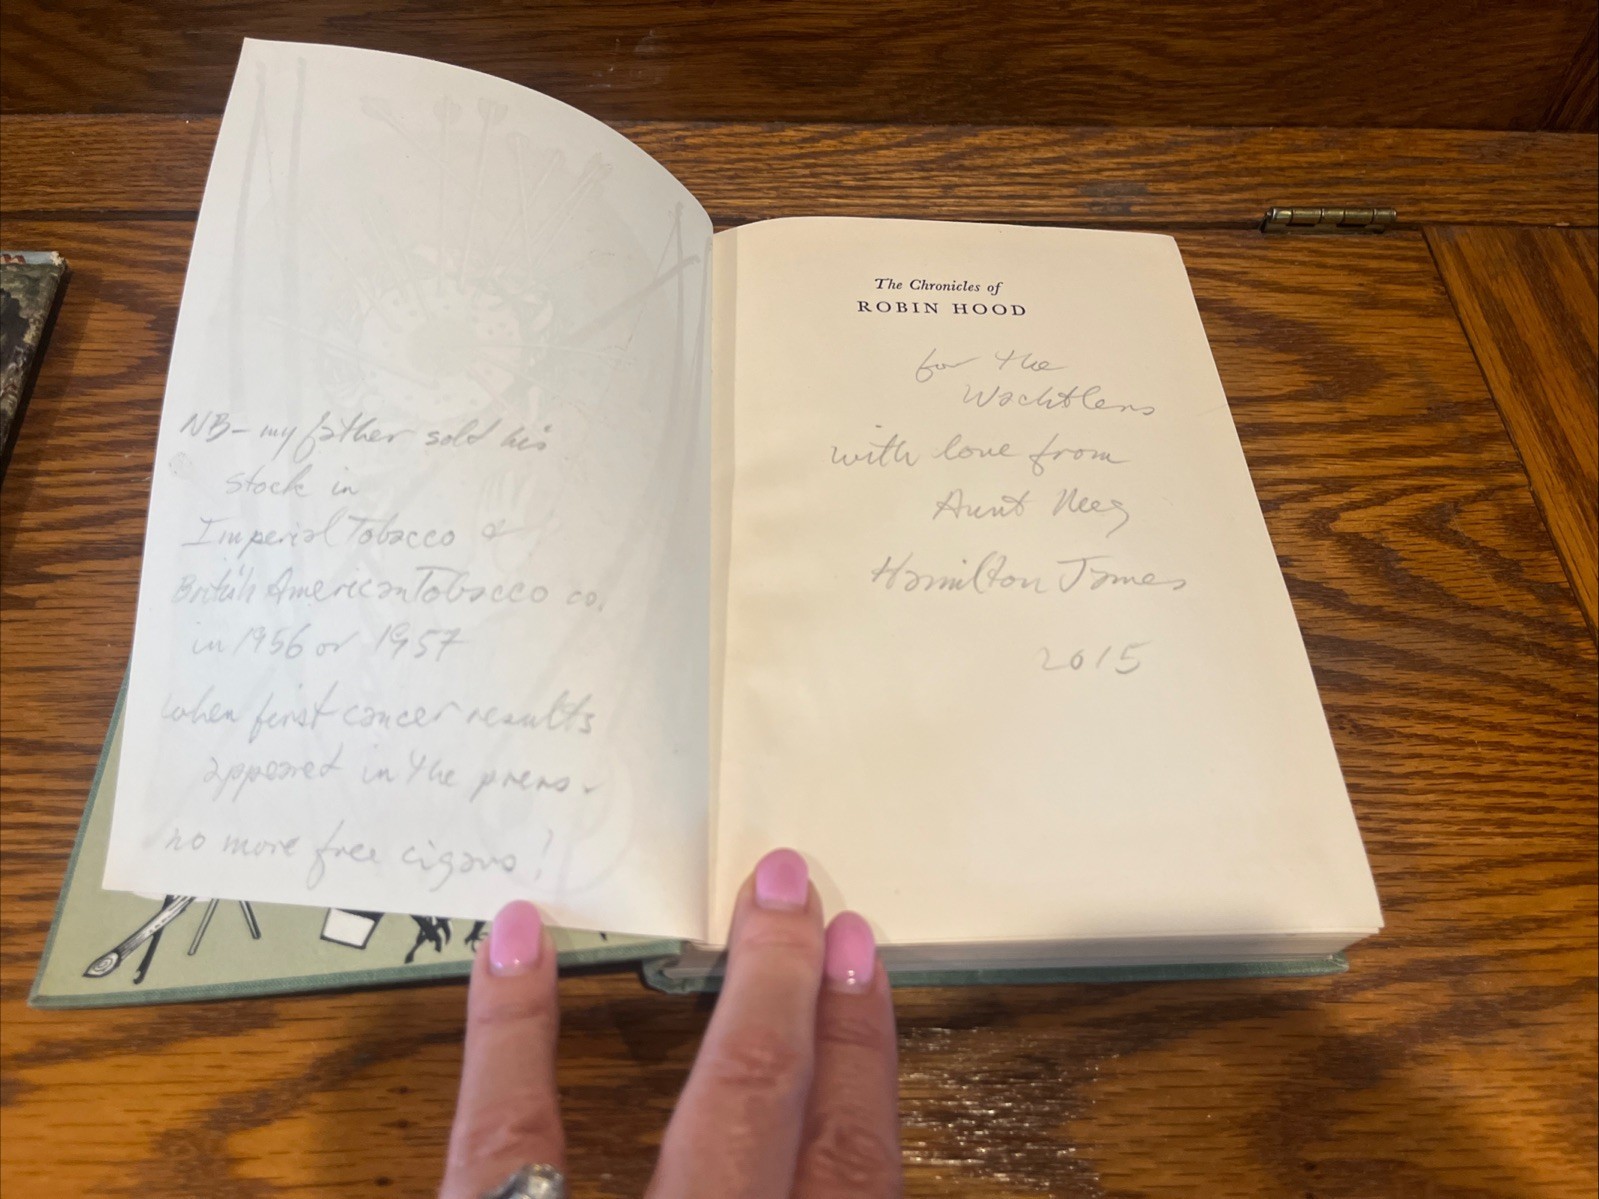 NB– my father sold his
stock in
Imperial Tobacco &
British American Tobacco co.
in 1956 or 1957
when first cancer results
appeared in the press –
no more free cigars!
The Chronicles of
ROBIN HOOD
for the
Wachtlers
with love from
Aunt Meg
Hamilton James
2015